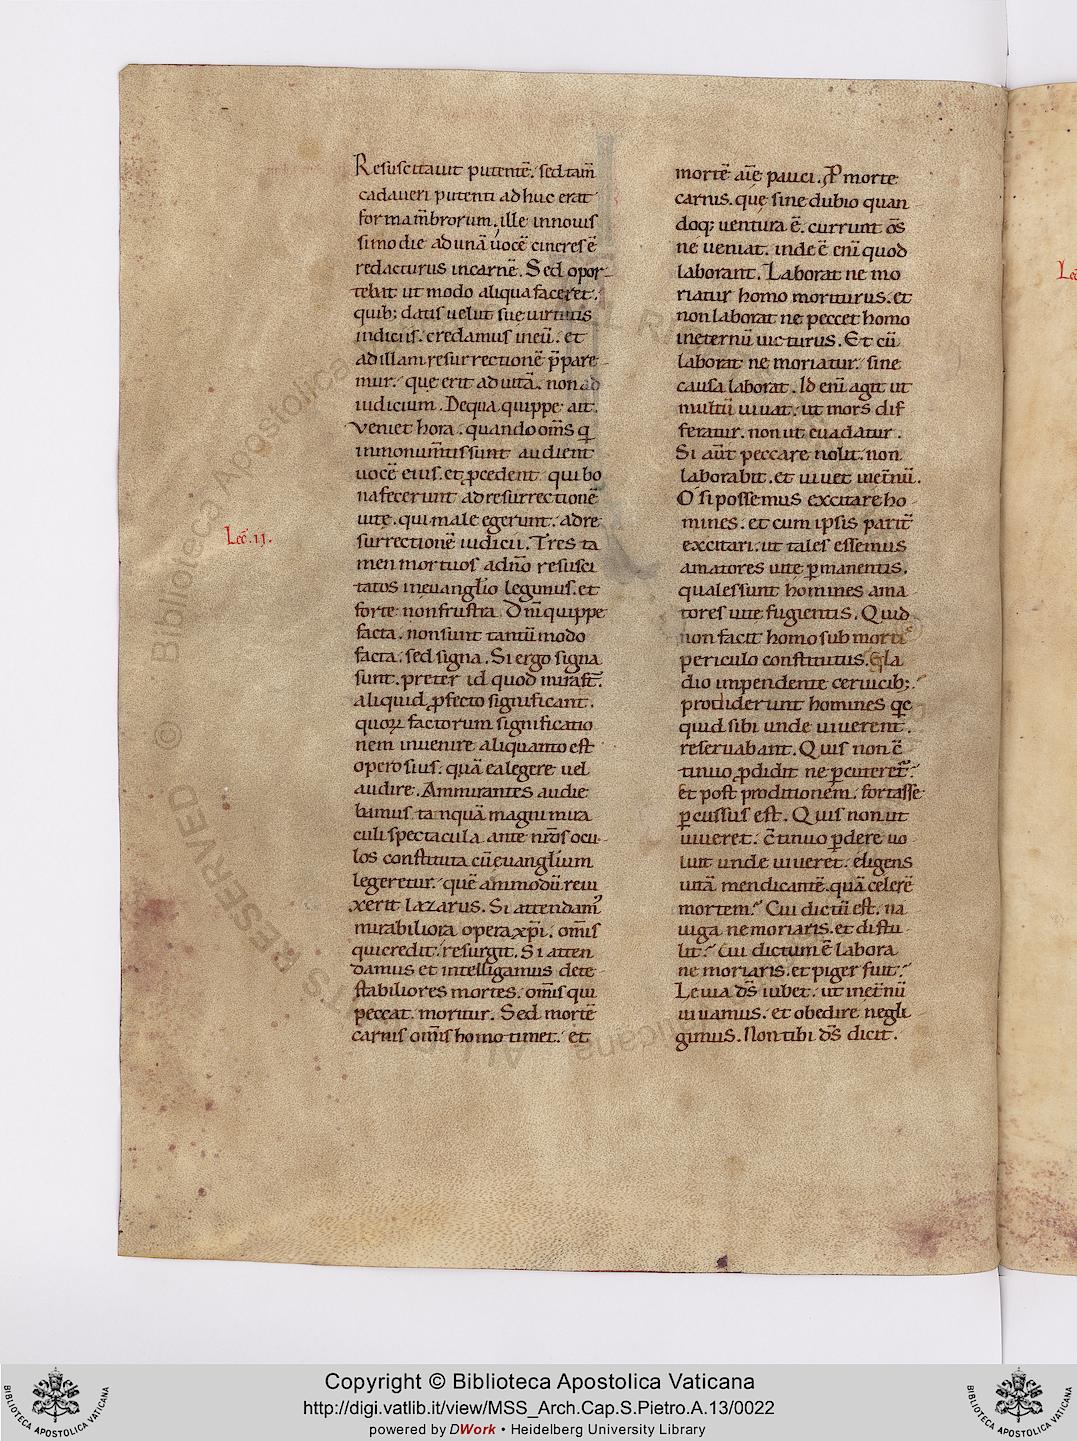 Resuscitauit putentē. sed tam̄
cadaueri putenti ad huc erat
forma mēbrorum. ille innouis
simo die ad unā uocē cineres ē
redacturus in carnē. Sed opor
tebat ut modo aliqua faceret.
quib; datis uelut sue uirtutis
indiciis. credamus in eū. et
ad illam resurrectionē p̄pare
mur. que erit ad uitā. non ad
iudicium. De qua quippe ait.
Veniet hora. quando om̄s q̄
in monum̄tis sunt audient
uocē eius. et ꝓcedent qui bo
na fecerunt ad resurrectionē
uitę. qui male egerunt. ad re
Lec̄. ıı.
surrectionē iudicii. Tres ta
men mortuos a dn̄o resusci
tatos in euanglio legimus. et
forte non frustra. Dn̄i quippe
facta. non sunt tantūmodo
facta. sed signa. Si ergo signa
sunt. preter id quod mira st̄.
aliquid ꝓfecto significant.
quoꝝ factorum significatio
nem inuenire aliquanto est
operosius. quā ea legere uel
audire. Ammirantes audie
bamus tanquā magni mira
culi spectacula ante nr̄os ocu
los constituta cū euanglium
legeretur. quē ammodū reui
xerit lazarus. Si attendam'
mirabiliora opera xp̄i. om̄is
qui credit. resurgit. Si atten
damus et intelligamus dete
stabiliores mortes. om̄is qui
peccat. moritur. Sed mortē
carnis om̄is homo timet. et
mortē aīe pauci. P̱ morte
carnis. quę sine dubio quan
doq; uentura ē. currunt ōs
ne ueniat. inde ē enī quod
laborant. Laborat ne mo
riatur homo moriturus. et
non laborat ne peccet homo
in eternū uicturus. Et cū
laborat ne moriatur. sine
causa laborat. Id enī agit ut
multū uiuat. ut mors dif
feratur. non ut euadatur.
Si aūt peccare nolit. non
laborabit. et uiuet inet̄nū.
O si possemus excitare ho
mines. et cum ipsis parit̄
excitari. ut tales essemus
amatores uite ꝑmanentis.
quales sunt homines ama
tores uite fugientis. Quid
non facit homo sub mortis
periculo constitutus. Gla
dio inpendente ceruicib;.
prodiderunt homines q̄c
quid sibi unde uiuerent.
reseruabant. Quis non c̄
tinuo ꝓdidit ne ꝑcuteret̄.
Et post proditionem. fortasse
ꝑcussus est. Quis non ut
uiueret. c̄tinuo ꝑdere uo
luit unde uiueret. eligens
uitā mendicantē. quā celerē
mortem. Cui dictū est. na
uiga ne moriaris. et distu
lit. Cui dictum ē labora
ne moriaris. et piger fuit.
Leuia ds̄ iubet. ut inet̄nū
uiuamus. et obedire negli
gimus. Non tibi ds̄ dicit.
Copyright © Biblioteca Apostolica Vaticana
http://digi.vatlib.it/view/MSS_Arch.Cap.S.Pietro.A.13/0022
powered by DWork • Heidelberg University Library